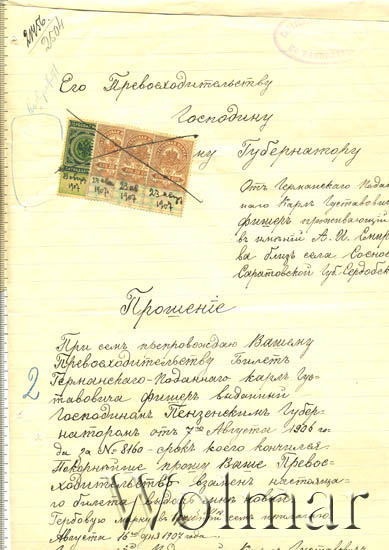 21456
2504
Его Превосходительству
Господину
ку Губернатору
23 авг
1907
23 авг
1907
23 авг
1907
Отъ Германскаго Поддан
наго Карла Густавовича
Фишеръ проживающій
въ имѣніи А. И.
ва близь села Сосно
Саратовской Губ. Сердобск
Прошеніе
При семъ препровождаю Вашему
Превосходительству Билетъ
Германскаго-Подданаго Карла Гус-
тавовича Фишеръ выданный
Господиномъ Пензенскимъ Губер-
наторомъ отъ 7го Августа 1906 го-
да за № 8160 - срокъ коего кончился
Покорнѣйше прошу Ваше Превос-
ходительство взаменъ настояща-
го билета выдать мнѣ новый
Гербовую марку въ при семъ прилагаю
Августа 15го дня 1907 года
2
Wolmar